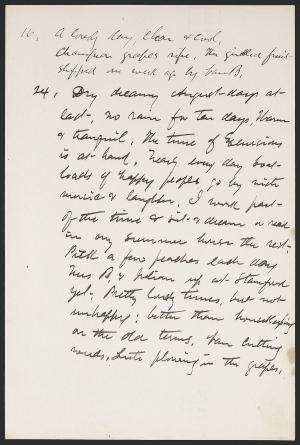 16, A lovely day, clear & cool,
Champion grapes ripe. The girdled fruit
shipped a week ago by train.
24, Dry dreamy August days at
last, no rain for ten days. Warm
& tranquil. The time of Excursions
is at hand. Nearly every day boat-
loads of happy people go by with
music & laughter. I work part
of the time & sit & dream or read
in my summer house the rest.
Pick a few peaches each day
Mrs B. & Julian up at Stamford
yet. Pretty lonely times, but not
unhappy; better than housekeeping
on the old terms. Van cutting
weeds, Lute plowing in the grapes.